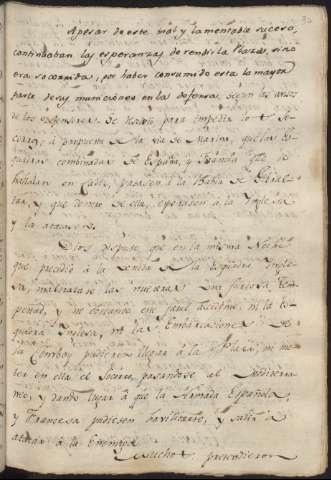 Apesar de este mal y lamentable suceso,
continuaban las esperanzas de rendir la Plaza, si no
era socorrida, por haber consumido esta la mayor
parte de sus municiones en la defensa. Segun los avisos
de los defensores. De Madrid para impedir los
Socorros, à propuesta de la via de Marina, que las Es-
quadras combinadas de España, y Francia q.e se
hallaban en Cadiz, pasasen à la Bahia de Gibral-
tar, y que dentro de ella, esperasen à la Ynglesa
y la atacasen.
Dios dispuso, que en la misma Noche
que precedió à la entrada de la Esquadra Yngle-
sa, maltratase las nuestras una furiosa Tem-
pestad, y no obstante, en fatal accidente, ni la Es-
quadra Ynglesa, ni las Embarcaciones de
la Comboy pudieron llegar à la Plaza, ni me-
ter en ella el Socorro, pasandose al Mediterra-
neo, y dando lugar à que la Armada Española,
y Francesa pudiesen havilitarse, y salir à
atacar à la Enemiga.
Muchos pretendieron